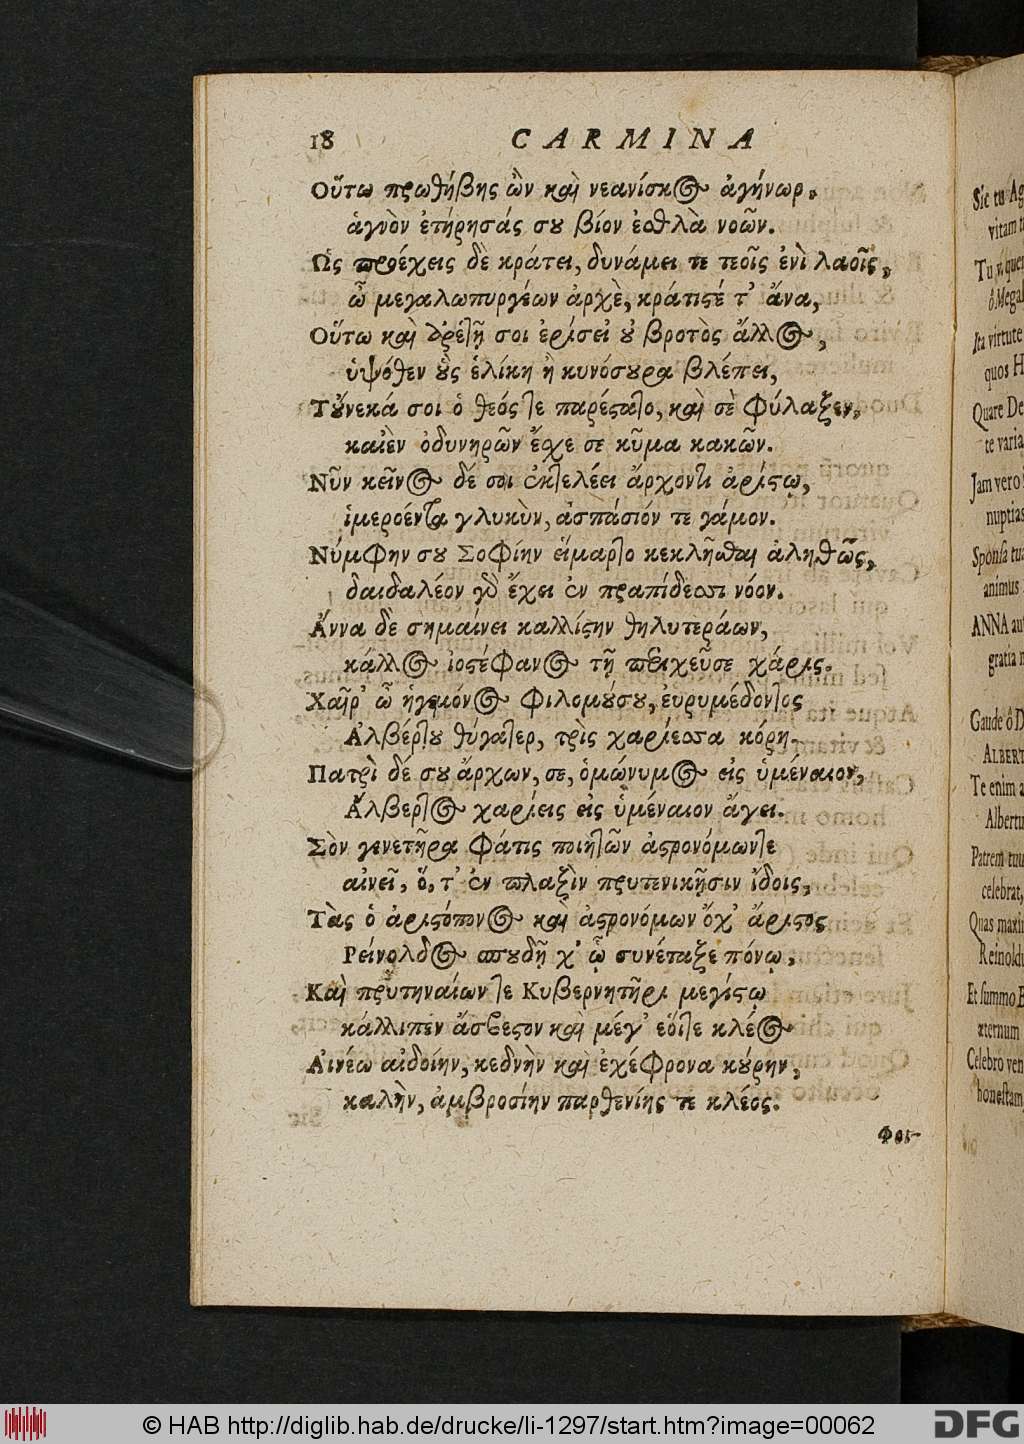 18 CARMINA
Οὕτω πρωθήβης ὢν καὶ νεανίσκος ἀγήνωρ,
ἁγνὸν ἐτήρησάς σου βίον ἐσθλὰ νοῶν.
Ὡς προέχεις δὲ κράτει, δυνάμει τε τεοῖς ἐνὶ λαοῖς,
ὦ μεγαλωπυργέων ἀρχὲ, κράτιστέ τ' ἄνα,
Οὕτω καὶ ἀρετῇ σοι ἐρίσει οὐ βροτὸς ἄλλος,
ὑψόθεν οὓς ἑλίκη ἢ κυνόσουρα βλέπει,
Τοὔνεκά σοι ὁ θεός τε παρέστατο, καὶ σὲ φύλαξεν,
καιὲν ὀδυνηρῶν ἔσχε σε κῦμα κακῶν.
Νῦν κεῖνος δέ σοι ἐκτελέει ἄρχοντι ἀρίστῳ,
ἱμερόεντα γλυκὺν, ἀσπάσιόν τε γάμον.
Νύμφην σου Σοφίην εἵμαρτο κεκλῆσθαι ἀληθῶς,
δαιδαλέον γὰρ ἔχει ἐν πραπίδεσσι νόον.
Ἄννα δὲ σημαίνει καλλίστην θηλυτεράων,
κάλλος ἰοστέφανος τῇ περιχεῦσε χάρις.
Χαῖρ' ὦ ἡγεμόνος φιλομούσου, εὐρυμέδοντος
Ἀλβέρτου θύγατερ, τρὶς χαρίεσσα κόρη.
Πατρὶ δέ σου ἄρχων, σε, ὁμώνυμος εἰς ὑμέναιον,
Ἄλβερτος χαρίεις εἰς ὑμέναιον ἄγει.
Σὸν γενετῆρα φάτις ποιητῶν ἀστρονόμων τε
αἰνεῖ, ὅ, τ' ἐν πλαξὶν πρυτενικῇσιν ἴδοις,
Τὰς ὁ ἀριστόπονος καὶ ἀστρονόμων ὄχ' ἄριστος
Ρείνολδος σπουδῇ χ' ᾧ συνέταξε πόνῳ,
Καὶ πρυτηναίων τε Κυβερνητῆρι μεγίστῳ
κάλλιπεν ἄσβεστον καὶ μέγ' ἑόν τε κλέος
Αἰνέω αἰδοίην, κεδνὴν καὶ ἐχέφρονα κούρην,
καλὴν, ἀμβροσίην παρθενίης τε κλέος.
Φοι-
Sic tu Ag
vitam
Tu v. quem
ô Megal
Ita virtute
quos H
Quare De
te varia
Jam vero
nuptias
Sponsa tua
animus
ANNA aut
gratia
Gaude ô D
ALBERT
Te enim a
Albertu
Patrem tuu
celebrat,
Quas maxi
Reinoldu
Et summo
æternum
Celebro ven
honestam,
© HAB http://diglib.hab.de/drucke/li-1297/start.htm?image=00062
DFG